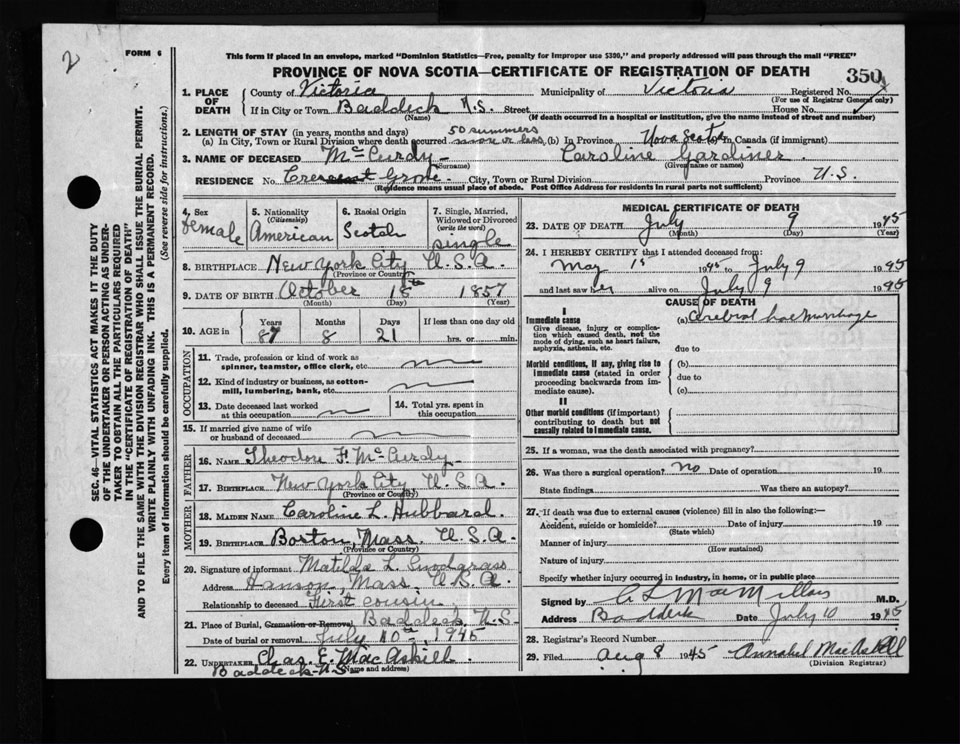 2
FORM 6
This form if placed in an envelope, marked "Dominion Statistics—Free, penalty for improper use $300," and properly addressed will pass through the mail "FREE"
PROVINCE OF NOVA SCOTIA—CERTIFICATE OF REGISTRATION OF DEATH
350
1. PLACE OF DEATH
County of Victoria Municipality of Victoria Registered No.
(For use of Registrar General only)
If in City or Town Baddeck N.S. Street House No.
(Name) (If death occurred in a hospital or institution, give the name instead of street and number)
2. LENGTH OF STAY (in years, months and days)
(a) In City, Town or Rural Division where death occurred 50 summers more or less (b) In Province Nova Scotia In Canada (if immigrant)
3. NAME OF DECEASED McCurdy Caroline Gardiner
(Surname) (Given name or names)
RESIDENCE No. Crescent Grove City, Town or Rural Division Province U.S.
(Residence means usual place of abode. Post Office Address for residents in rural parts not sufficient)
4. Sex female
5. Nationality (Citizenship) American
6. Racial Origin Scotch
7. Single, Married, Widowed or Divorced (write the word) single
8. BIRTHPLACE New York City U.S.A.
(Province or Country)
9. DATE OF BIRTH October 18th 1857
(Month) (Day) (Year)
10. AGE in Years 87 Months 8 Days 21 If less than one day old hrs. or min.
OCCUPATION
11. Trade, profession or kind of work as spinner, teamster, office clerk, etc.
12. Kind of industry or business, as cotton-mill, lumbering, bank, etc.
13. Date deceased last worked at this occupation
14. Total yrs. spent in this occupation
15. If married give name of wife or husband of deceased
FATHER
16. NAME Theodore F. McCurdy
17. BIRTHPLACE New York City U.S.A.
(Province or Country)
MOTHER
18. MAIDEN NAME Caroline L. Hubbard
19. BIRTHPLACE Boston, Mass. U.S.A.
(Province or Country)
20. Signature of informant Matilda L. Snodgrass
Address Hanson, Mass U.S.A.
Relationship to deceased First cousin
21. Place of Burial, Cremation or Removal Baddeck N.S.
Date of burial or removal July 10th, 1945
22. UNDERTAKER Chas. E. MacAskill
Baddeck N.S. (Name and address)
MEDICAL CERTIFICATE OF DEATH
23. DATE OF DEATH July 9 1945
(Month) (Day) (Year)
24. I HEREBY CERTIFY that I attended deceased from:
May 1st 1945 to July 9 1945
and last saw her alive on July 9 1945
CAUSE OF DEATH
I
Immediate cause (a) Cerebral haemorrhage
Give disease, injury or complication which caused death, not the mode of dying, such as heart failure, asphyxia, asthenia, etc.
due to
Morbid conditions, if any, giving rise to immediate cause (stated in order proceeding backwards from immediate cause).
(b)
due to
(c)
II
Other morbid conditions (if important) contributing to death but not causally related to immediate cause.
25. If a woman, was the death associated with pregnancy?
26. Was there a surgical operation? no Date of operation 19
State findings Was there an autopsy?
27. If death was due to external causes (violence) fill in also the following:—
Accident, suicide or homicide? Date of injury 19
(State which)
Manner of injury
(How sustained)
Nature of injury
Specify whether injury occurred in industry, in home, or in public place
Signed by C L MacMillan M.D.
Address Baddeck Date July 10 1945
28. Registrar's Record Number
29. Filed Aug 8 1945 Annabel MacAskill
(Division Registrar)
SEC. 46—VITAL STATISTICS ACT MAKES IT THE DUTY
OF THE UNDERTAKER OR PERSON ACTING AS UNDER-
TAKER TO OBTAIN ALL THE PARTICULARS REQUIRED
IN THE "CERTIFICATE OF REGISTRATION OF DEATH"
AND TO FILE THE SAME WITH THE DIVISION REGISTRAR WHO SHALL ISSUE THE BURIAL PERMIT.
WRITE PLAINLY WITH UNFADING INK. THIS IS A PERMANENT RECORD.
Every item of information should be carefully supplied. (See reverse side for instructions.)